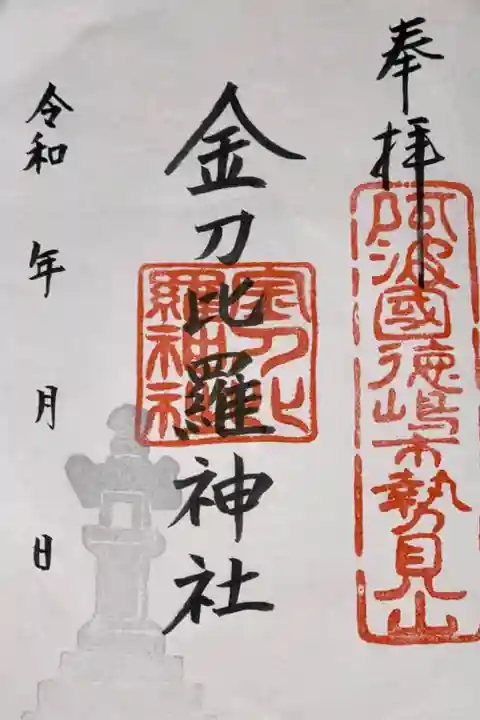 奉拝
阿波國徳嶋市勢見山
金刀比羅神社
金刀比
羅神社
令和 年 月 日